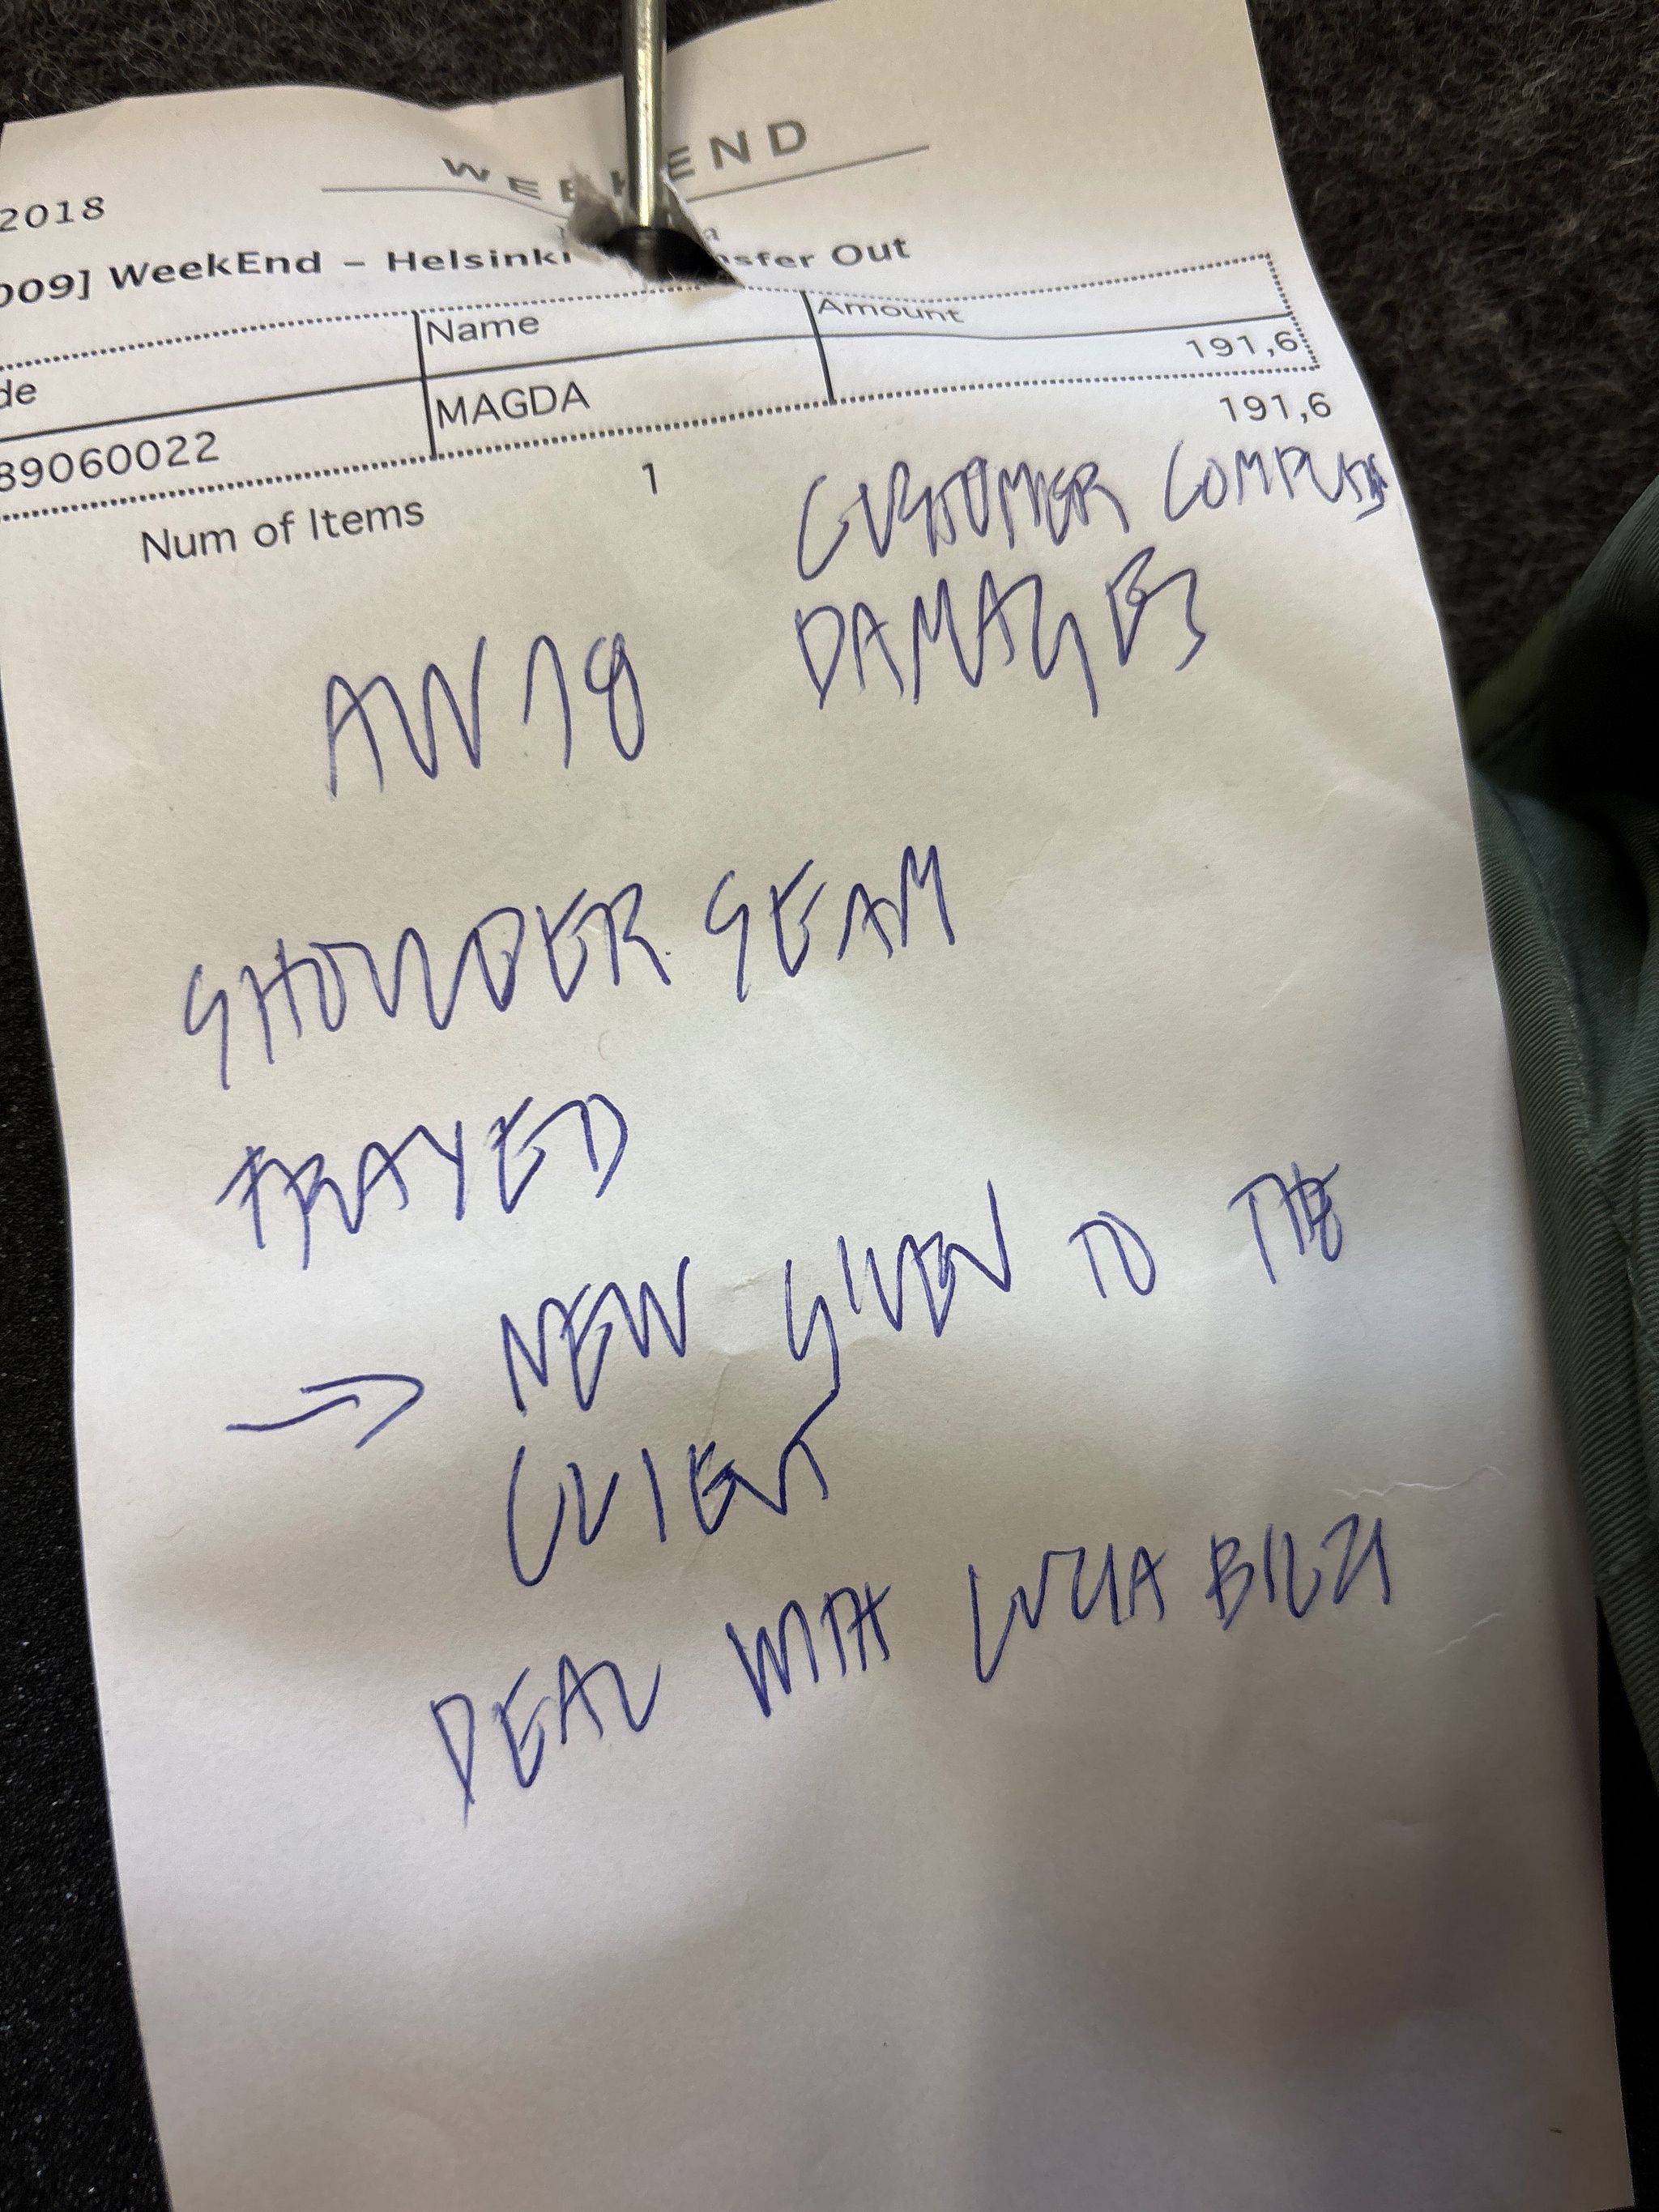 WEEKEND
2018
009] WeekEnd – Helsinki nsfer Out
de Name Amount
89060022 MAGDA 191,6
191,6
Num of Items 1
CUSTOMER
DAMAGES
AW 18
SHOULDER SEAM
FRAYED
→ NEW GIVEN TO THE
CLIENT
DEAL WITH LUZIA